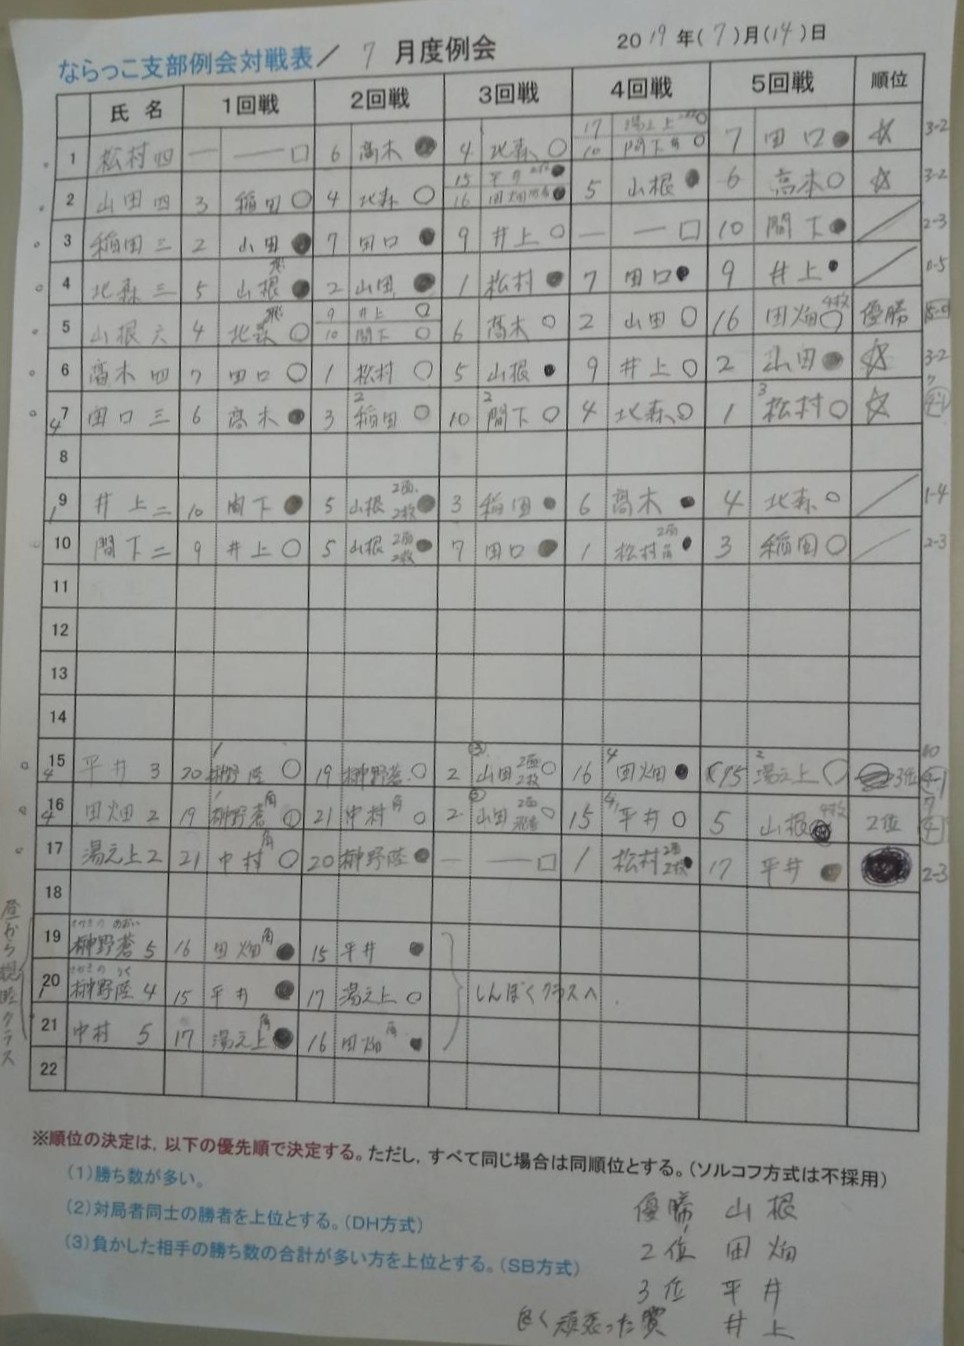 ならっこ支部例会対戦表/ 7 月度例会 2019年(7)月(14)日
氏名 1回戦 2回戦 3回戦 4回戦 5回戦 順位
1 松村 四 — — □ 6 高木 ● 4 北森 ○ 17 湯之上 ○ 10 間下 角 ○ 7 田口 ● ☆ 3-2
2 山田 四 3 稲田 ○ 4 北森 ○ 15 平井 ● 16 田畑 ● 5 山根 ● 6 高木 ○ ☆ 3-2
3 稲田 三 2 山田 ● 7 田口 ● 9 井上 ○ — — □ 10 間下 ● 2-3
4 北森 三 5 山根 飛 ● 2 山田 ● 1 松村 ● 7 田口 ● 9 井上 ● 0-5
5 山根 六 4 北森 飛 ○ 9 井上 ○ 10 間下 ○ 6 高木 ○ 2 山田 ○ 16 田畑 4枚 ○ 優勝 5-0
6 高木 四 7 田口 ○ 1 松村 ○ 5 山根 ● 9 井上 ○ 2 山田 ● ☆ 3-2
7 4 田口 三 6 高木 ● 3 稲田 2 ○ 10 間下 2 ○ 4 北森 ○ 1 松村 3 ○ ☆ 7 4-1
8
9 1 井上 二 10 間下 ● 5 山根 2面 2枚 ● 3 稲田 ● 6 高木 ● 4 北森 ○ 1-4
10 間下 二 9 井上 ○ 5 山根 2面 2枚 ● 7 田口 ● 1 松村 2面 角 ● 3 稲田 ○ 2-3
11
12
13
14
15 4 平井 3 20 榊野陸 1 ○ 19 榊野蒼 ○ 2 山田 ③ 2面 2枚 ○ 16 田畑 4 ● 15 湯之上 2 ○ 3位 10 4-1
16 4 田畑 2 19 榊野蒼 角 ○ 21 中村 角 ○ 2 山田 ③ 2面 飛香 ○ 15 平井 4 ○ 5 山根 4枚 ● 2位 7 4-1
17 湯之上 2 21 中村 角 ○ 20 榊野陸 ● — — □ 1 松村 2面 2枚 ● 17 平井 ● 2-3
18
19 榊野蒼 5 16 田畑 角 ● 15 平井 ●
20 1 榊野陸 4 15 平井 ● 17 湯之上 ○ しんぼくクラスへ
21 中村 5 17 湯之上 角 ● 16 田畑 角 ●
22
昼から親睦クラス
※順位の決定は、以下の優先順で決定する。ただし、すべて同じ場合は同順位とする。(ソルコフ方式は不採用)
(1)勝ち数が多い。
(2)対局者同士の勝者を上位とする。(DH方式)
(3)負かした相手の勝ち数の合計が多い方を上位とする。(SB方式)
優勝 山根
2位 田畑
3位 平井
良く頑張った賞 井上